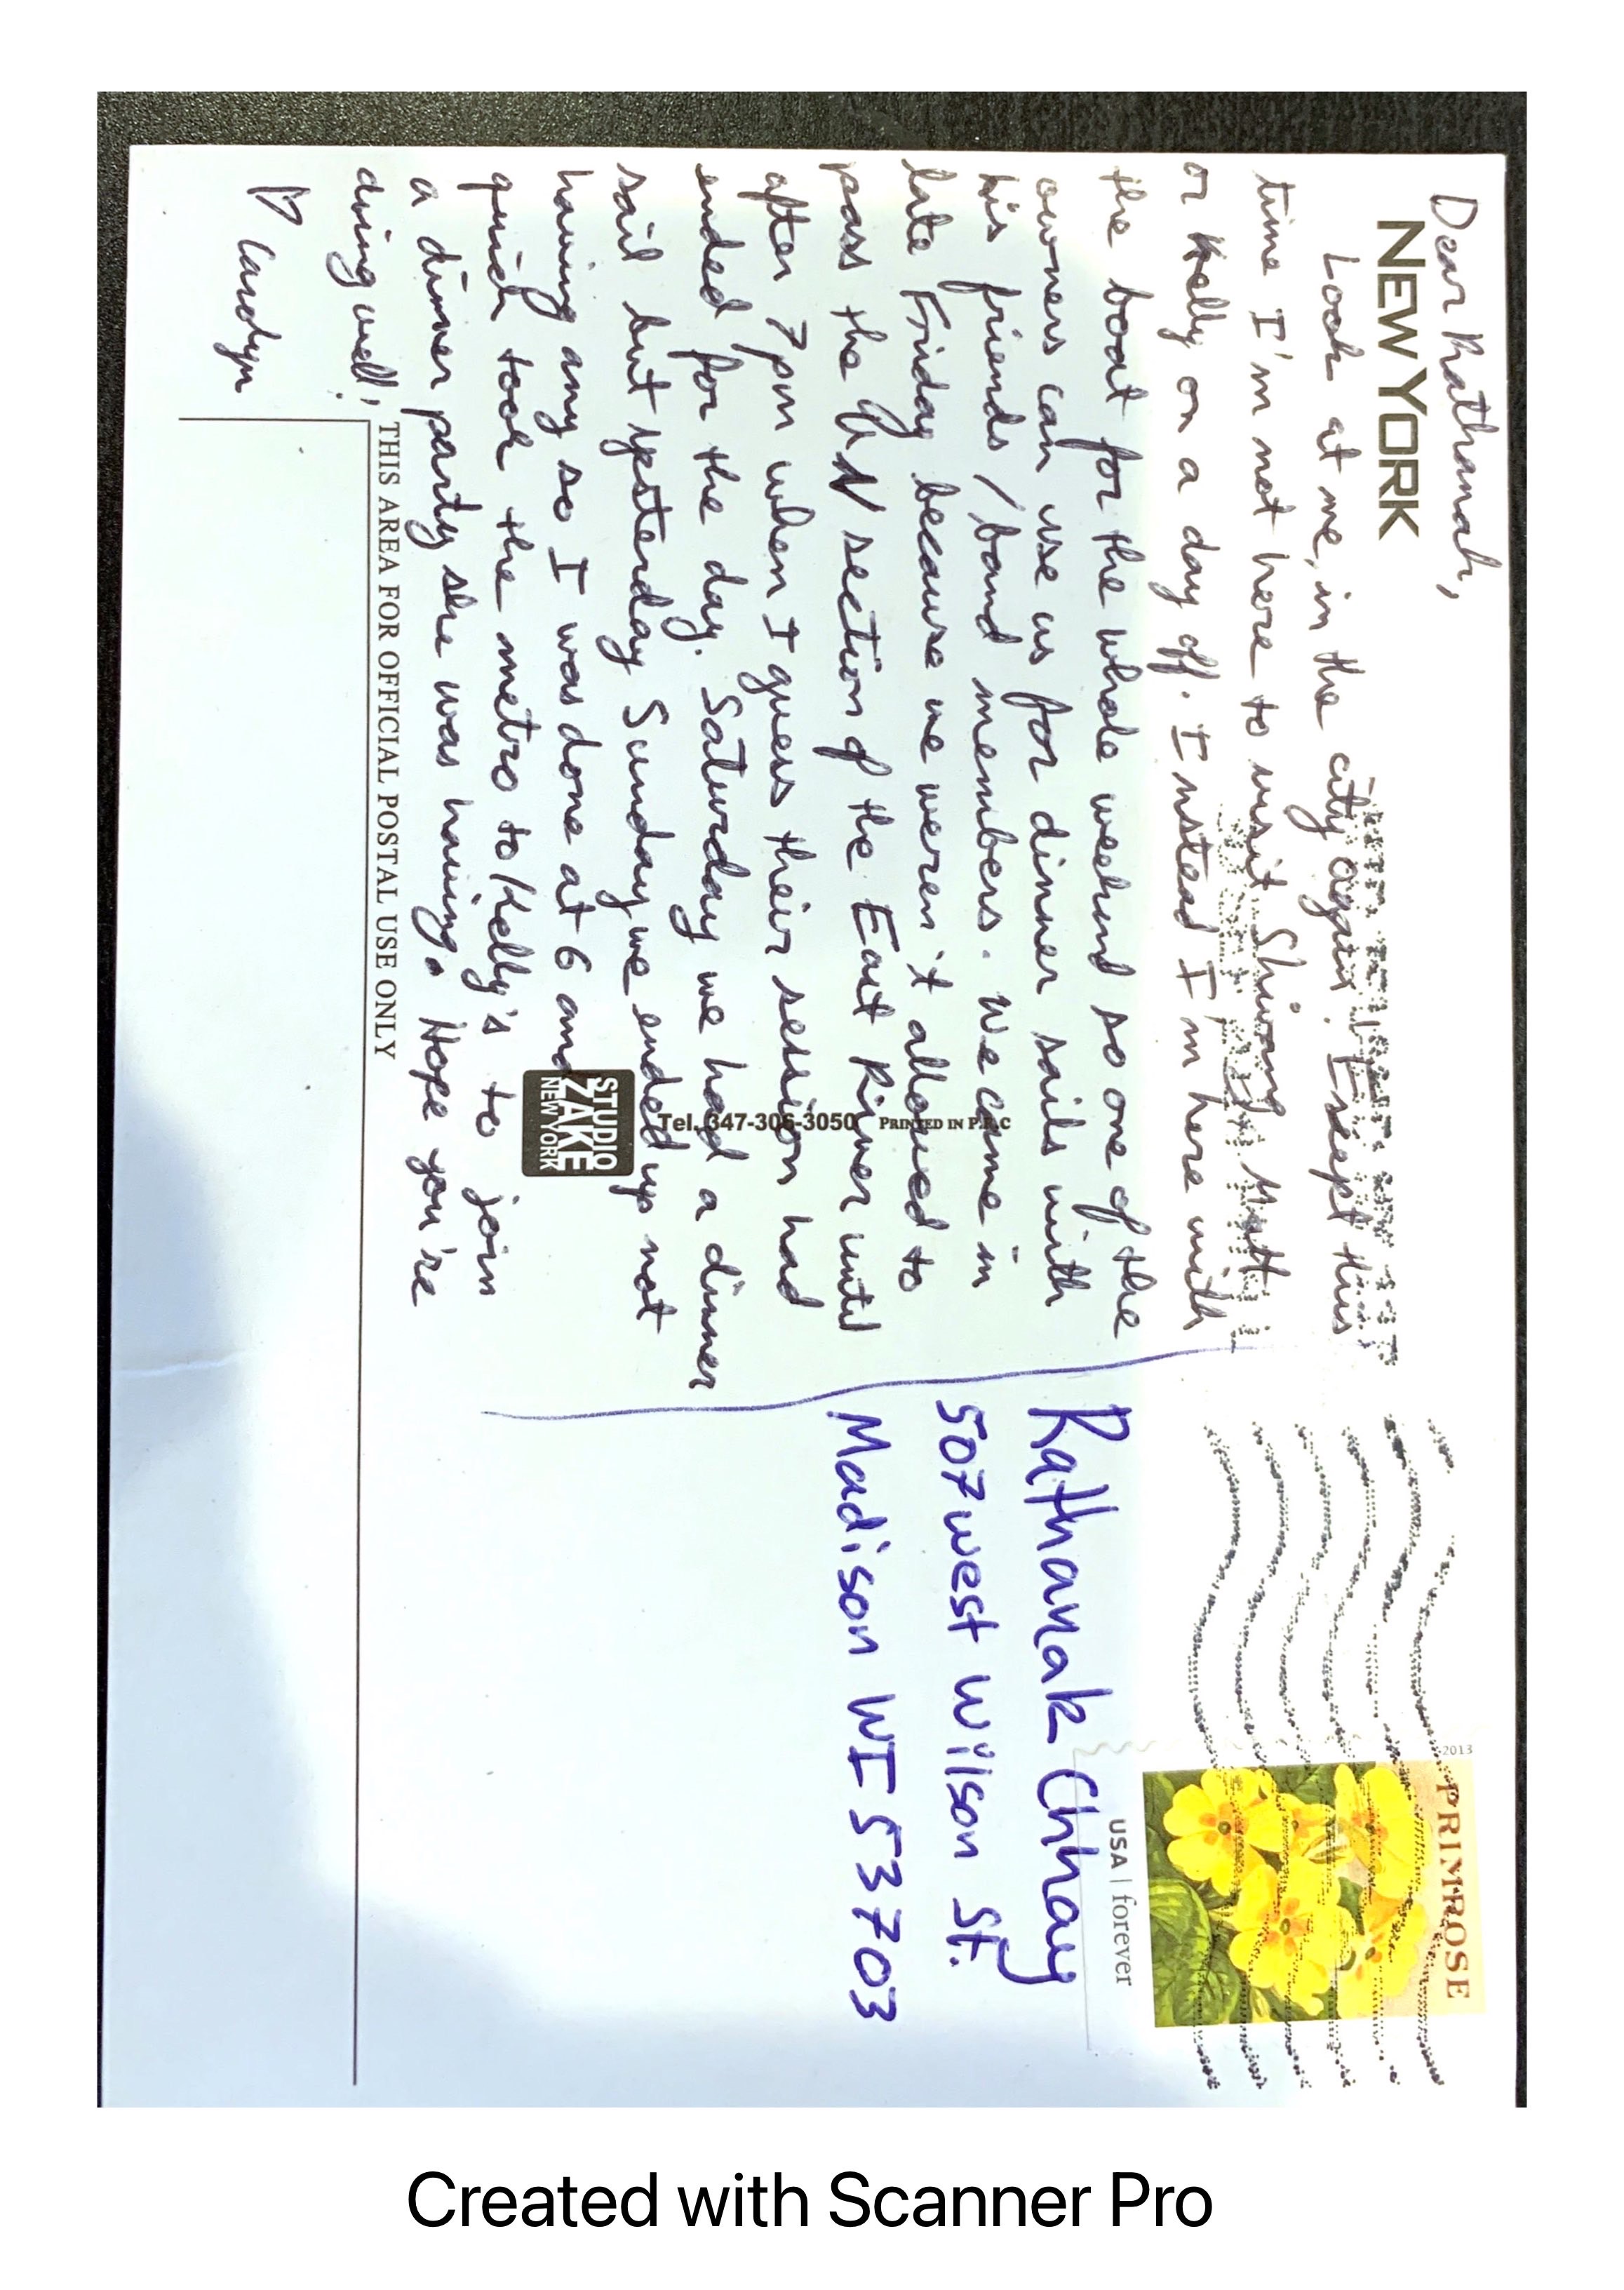 Dear Rathanak,
NEW YORK
Look at me, in the city again! Exept this
time I'm not here to visit Shiwang Matt
or Kelly on a day off. Instead I'm here with
the boat for the whole weekend so one of the
owners can use us for dinner sails with
his friends/band members. We came in
late Friday because we weren't allowed to
pass the UN section of the East River until
after 7pm when I guess their session had
ended for the day. Saturday we had a dinner
sail but yesterday Sunday we ended up not
having any so I was done at 6 and
quick took the metro to Kelly's to join
a dinner party she was having. Hope you're
doing well!
♡ Carolyn
PRIMROSE
2013
USA | forever
Rathanak Chhay
507 West Wilson St.
Madison WI 53703
Tel. 347-306-3050 PRINTED IN P.R.C
STUDIO
ZAKE
NEW YORK
THIS AREA FOR OFFICIAL POSTAL USE ONLY
Created with Scanner Pro